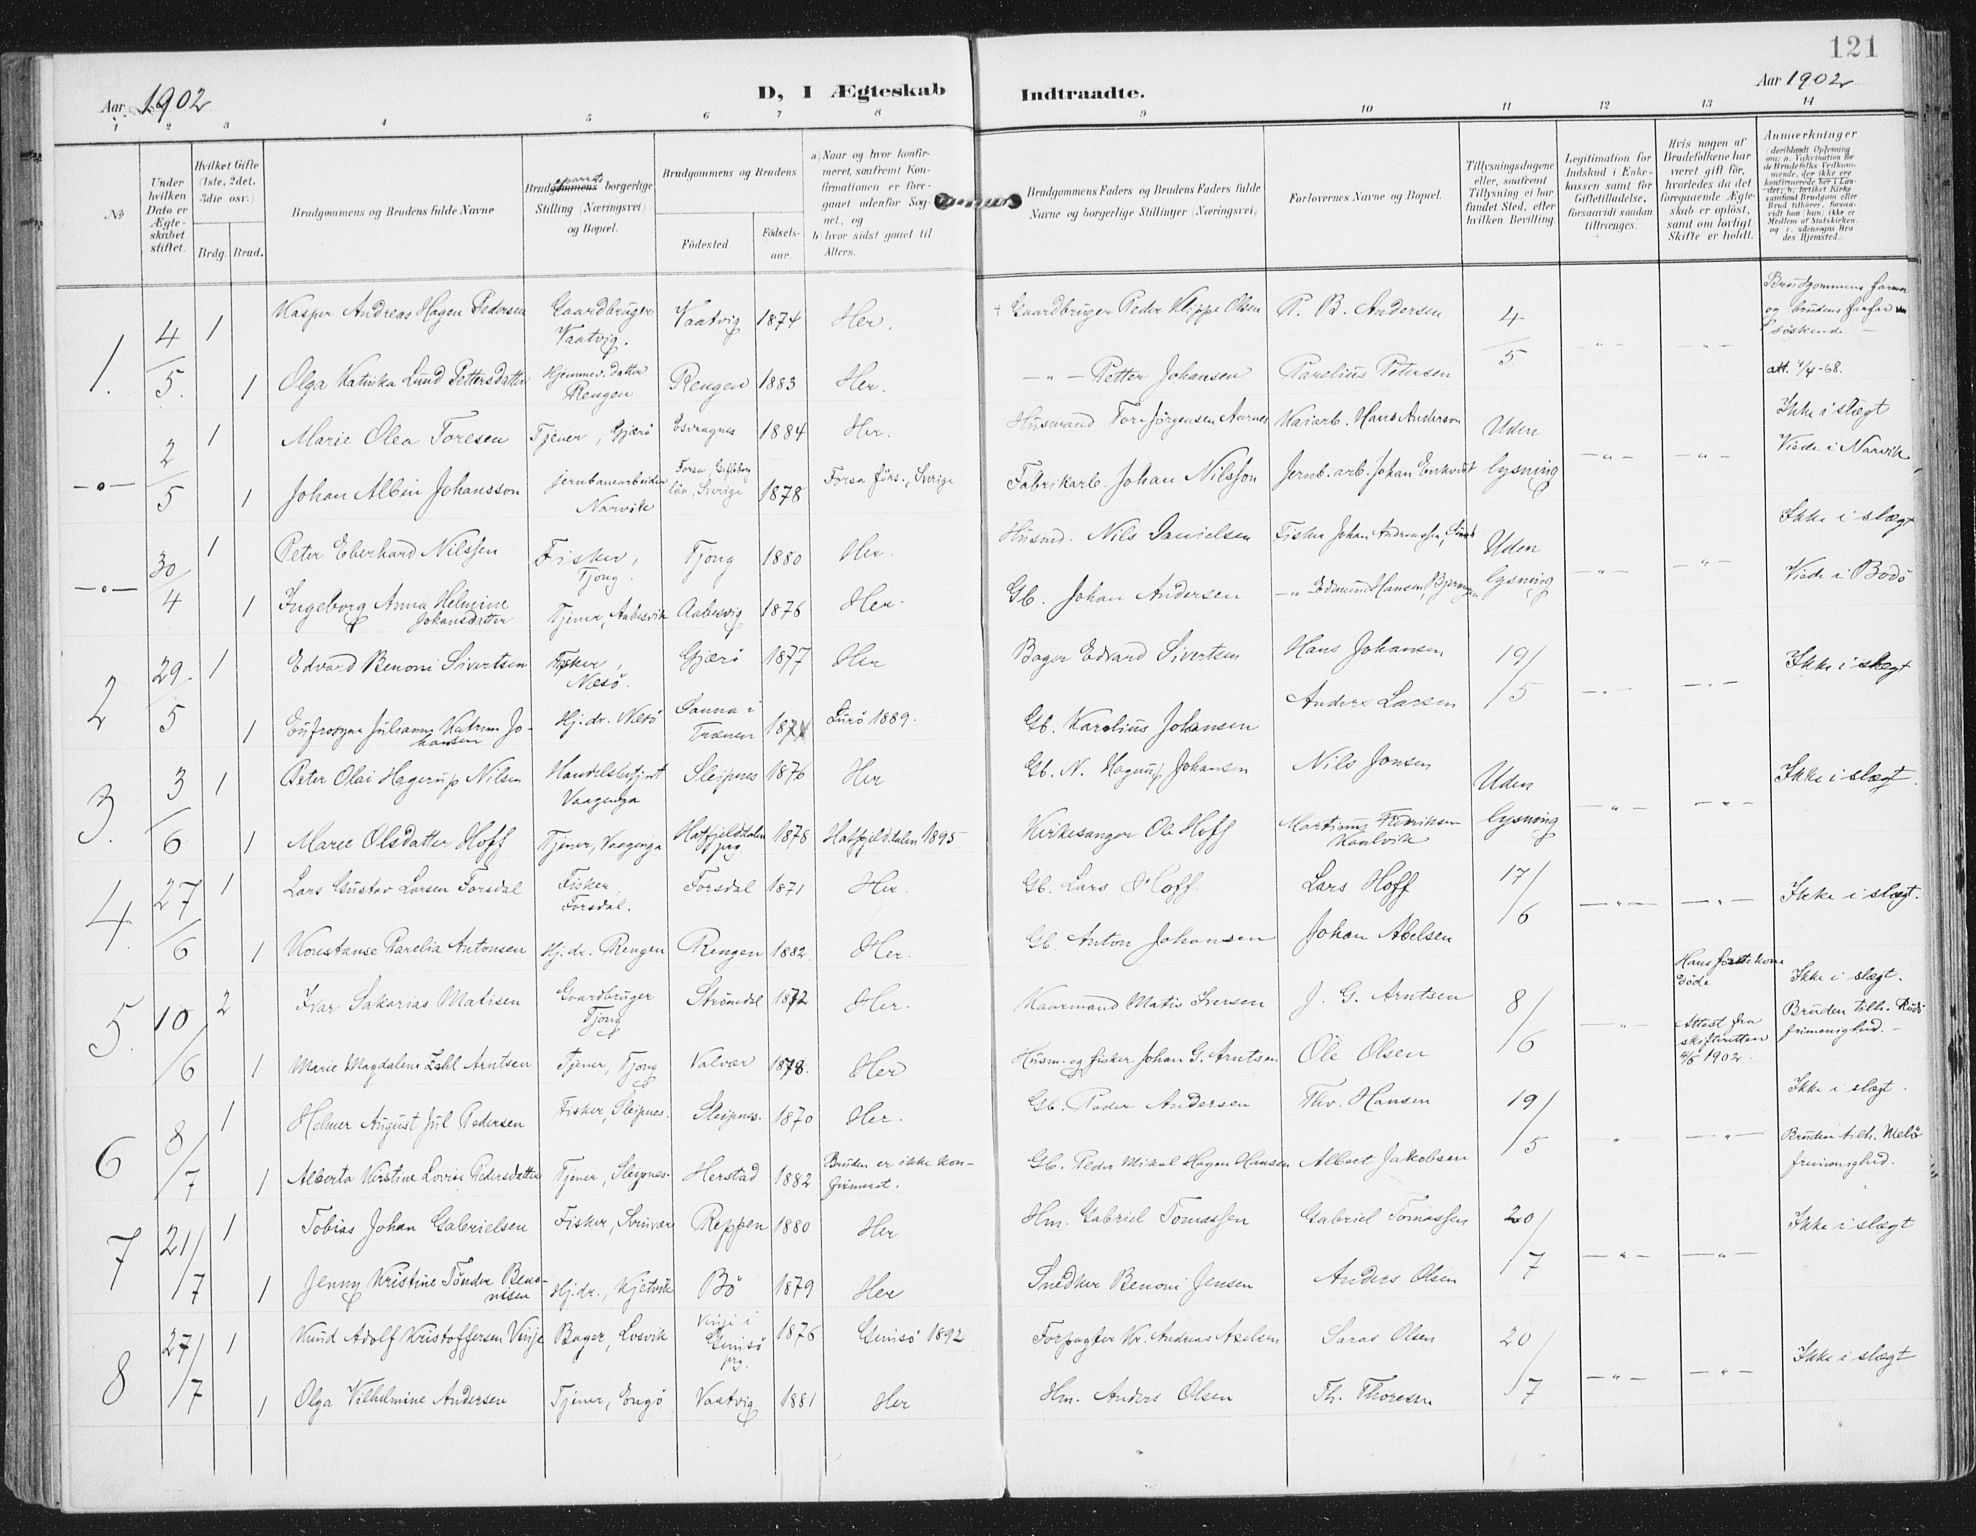 121
Aar 1902
D, I Ægteskab Indtraadte.
Aar 1902
1 2 3 4 5 6 7 8 9 10 11 12 13 14
No
Under hvilken Dato er Ægteskabet stiftet.
Hvilket Gifte (1ste, 2det, 3die osv.)
Brdg. Brud.
Brudgommens og Brudens fulde Navne
Brudgommens borgerlige Stilling (Næringsvei) og Bopæl.
Brudgommens og Brudens
Fødested.
Fødselsaar.
a) Naar og hvor konfirmeret, samfremt Konfirmationen er foregaaet udenfor Sognet, og
b) hvor sidst gaaet til Alters.
Brudgommens Faders og Brudens Faders fulde Navne og borgerlige Stillinger (Næringsvei)
Forlovernes Navne og Bopæl.
Tillysningsdagene eller, saafremt Tillysning ei har fundet Sted, efter hvilken Bevilling.
Legitimation for Indskud i Enkekassen samt for Giftetilladelse, forsaavidt saadan tiltrænges.
Hvis nogen af Brudefolkene har været gift før, hvorledes da det foregaaende Ægteskab er opløst, samt om lovligt Skifte er holdt.
Anmærkninger
1. 4/5. 1 Kasper Andreas Hagen Pedersen Gaardbruger Vaatvig. Vaatvig 1874 Her. + Gaardbruger Peder Klippe Olsen P. B. Andersen 4/5 —"— —"— Brudgommens farmor og brudens farfar søskende —
1 Olga Katinka Lund Pettersdatter Hjemmev. datter Rengen Rengen 1883 Her. —"— Petter Johansen Parelius Petersen att. 4/4-68.
—o— 2/5 1 Marie Olea Toresen Tjener, Gjærø Esvragnes 1884 Her. Husmand Tore Jørgensen Aarnes Kaiarb. Hans Anderson Uden lysning —"— —"— Ikke i slægt
1 Johan Albin Johansson jernbanearbeider Narvik Forsa, Gefleborg län, Sverige 1878 Forsa förs., Sverige Fabrikarb. Johan Nilsson Jernb. arb. Johan Enkvist Viede i Narvik
—o— 30/4 1 Peter Eberhard Nilssen Fisker, Tjong. Tjong 1880 Her. Husmd. Nils Danielsen Fisker Johan Andreassen, Uden lysning —"— —"— Ikke i slægt
1 Ingeborg Anna Helmine Johansdatter Tjener, Aabesvik Aabesvig 1876 Her. Gb. Johan Andersen —"— Edmund Hansen, Viede i Bodø
2 29/5 1 Edvard Benoni Sivertsen Fisker, Næsø. Gjærø 1877 Her Bager Edvard Sivertsen Hans Johansen 19/5 —"— —"— Ikke i slægt
1 Eufrosyne Julianna Katrine Johansen Hj. dr. Næsø Sanna i Trænen 187 Lurø 1889. Gb. Karolius Johansen Anders Larsen
3. 3/6 1 Peter Olai Hagerup Nilsen Handelsbetjent Vaagenga Sleipnes 1876 Her Gb. N. Hagerup Johansen Nils Jonsen Uden lysning —"— —"— Ikke i slægt.
1 Maree Olsdatter Hoff Tjener, Vaagenga Hatfjelddalen prg 1878 Hatfjelddalen 1895 Kirkesanger Ole Hoff Martinus Fredriksen Kaalvik
4. 27/6 1 Lars Gustav Larsen Forsdal Fisker, Forsdal. Forsdal 1871 Her. Gb. Lars O Hoff. Lars Hoff 17/6 —"— —"— Ikke i slægt.
1 Konstanse Parelia Antonsen Hj. dr. Rengen Rengen 1882. Her. Gb. Anton Johansen Johan Abelsen
5. 10/6 2 Ivar Sakarias Matisen Gaardbruger Tjong Strømdal 1872 Her. Kaarmand Matis Iversen J. G. Arntsen 8/6 —"— Hans første kone døde Ikke i slægt.
1 Marie Magdalene Zahl Arntsen Tjener, Tjong Valvær 1878. Her Husm. og fisker Johan G. Arntsen Ole Olsen Attest fra skifteretten 4/6 1902. Bruden tilh. Rødø frimenighed. —
6 8/7 1 Helmer August Jul Pedersen Fisker, Sleipnes. Sleipnes. 1870 Her. Gb. Peder Andersen Thv. Hansen 19/5 " —"— Ikke i slægt.
1 Alberta Kirstine Lovise Pedersdatter Tjener, Sleipnes. Herstad 1882 Bruden er ikke konfirmeret. Gb. Peder Mikal Hagen Hansen Albert Jakobsen Bruden tilh. Melø frimenighed.
7 21/7 1 Tobias Johan Gabrielsen Fisker, Svinvær Reppen 1880 Her Hm. Gabriel Tomassen Gabriel Tomassen 20/7 —"— —"— Ikke i slægt
1 Jenny Kristine Tønder Benonisen Hj. dr., Kjetvik Bø 1879 Her Snedker Benoni Jensen Anders Olsen
8 27/7 1 Knud Adolf Kristoffersen Vinje Bager, Losvik Vinje i Gimsø prg. 1876 Gimsø 1892 Forpagter Kr. Andreas Axelsen Saras Olsen 20/7 —"— —"— Ikke i slægt
1 Olga Vilhelmine Andersen Tjener, Engø Vaatvig 1881 Her Hm. Anders Olsen Th. Thoresen